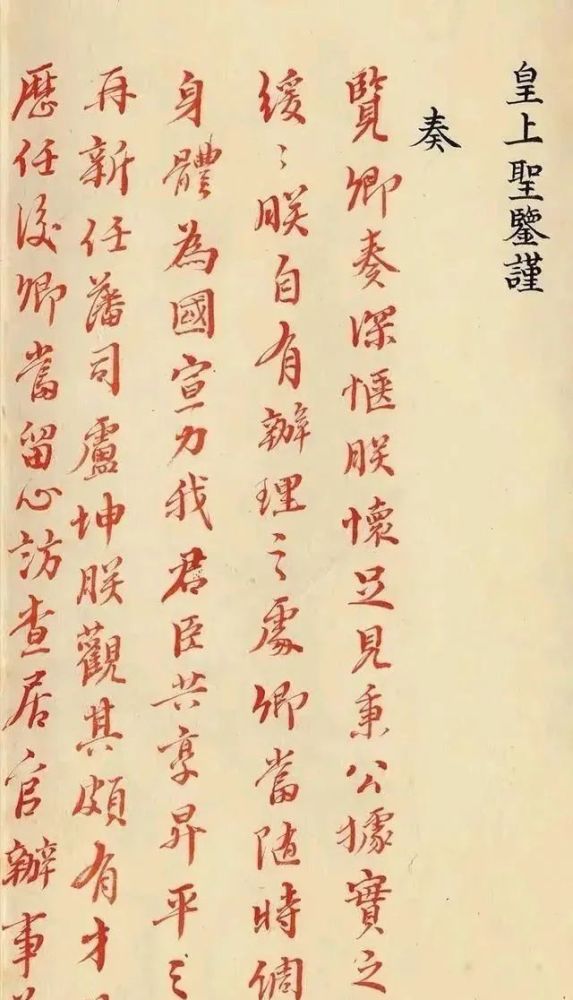 皇上聖鑒謹
奏
覽卿奏深愜朕懷足見秉公據實之
緩〻朕自有辦理之處卿當隨時倜
身體為國宣力我君臣共享昇平之
再新任藩司盧坤朕觀其頗有才
歷任後卿當留心訪查居官辦事